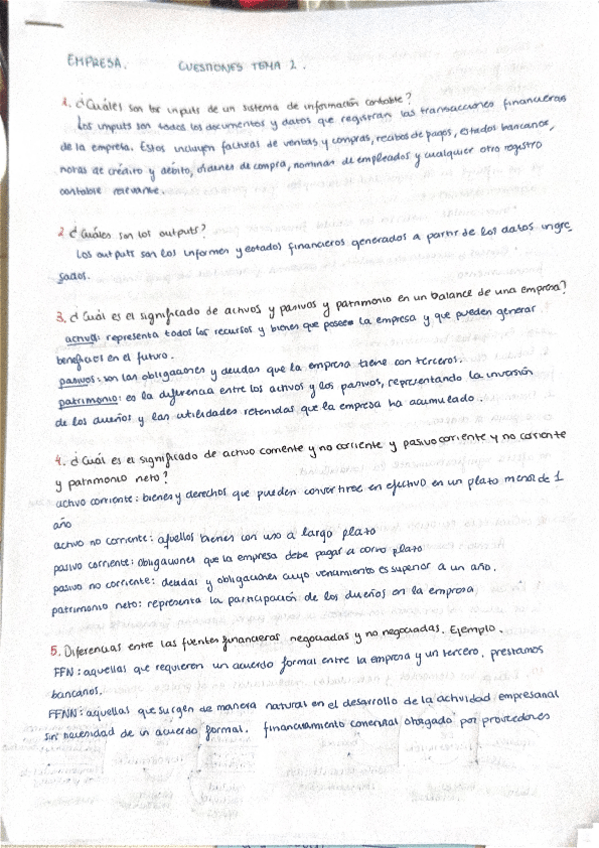 EMPRESA. CUESTIONES TEMA 2.
1. ¿Cuáles son los inputs de un sistema de información contable?
Los imputs son todos los documentos y datos que registran las transacciones financieras
de la empresa. Estos incluyen facturas de ventas y compras, recibos de pagos, estados bancarios,
notas de crédito y débito, órdenes de compra, nóminas de empleados y cualquier otro registro
contable relevante.
2. ¿Cuáles son los outputs?
Los outputs son los informes y estados financieros generados a partir de los datos ingre
sados.
3. ¿Cuál es el significado de activos y pasivos y patrimonio en un balance de una empresa?
activos: representa todos los recursos y bienes que posee la empresa y que pueden generar
beneficios en el futuro.
pasivos: son las obligaciones y deudas que la empresa tiene con terceros.
patrimonio: es la diferencia entre los activos y los pasivos, representando la inversión
de los dueños y las utilidades retenidas que la empresa ha acumulado.
4. ¿Cuál es el significado de activo corriente y no corriente y pasivo corriente y no corriente
y patrimonio neto?
activo corriente: bienes y derechos que pueden convertirse en efectivo en un plazo menor de 1
año
activo no corriente: aquellos bienes con uso a largo plazo
pasivo corriente: obligaciones que la empresa debe pagar a corto plazo
pasivo no corriente: deudas y obligaciones cuyo vencimiento es superior a un año.
patrimonio neto: representa la participación de los dueños en la empresa
5. Diferencias entre las fuentes financieras negociadas y no negociadas. Ejemplo.
FFN: aquellas que requieren un acuerdo formal entre la empresa y un tercero. prestamos
bancarios.
FFNN: aquellas que surgen de manera natural en el desarrollo de la actividad empresarial
sin necesidad de un acuerdo formal. financiamiento comercial otorgado por proveedores